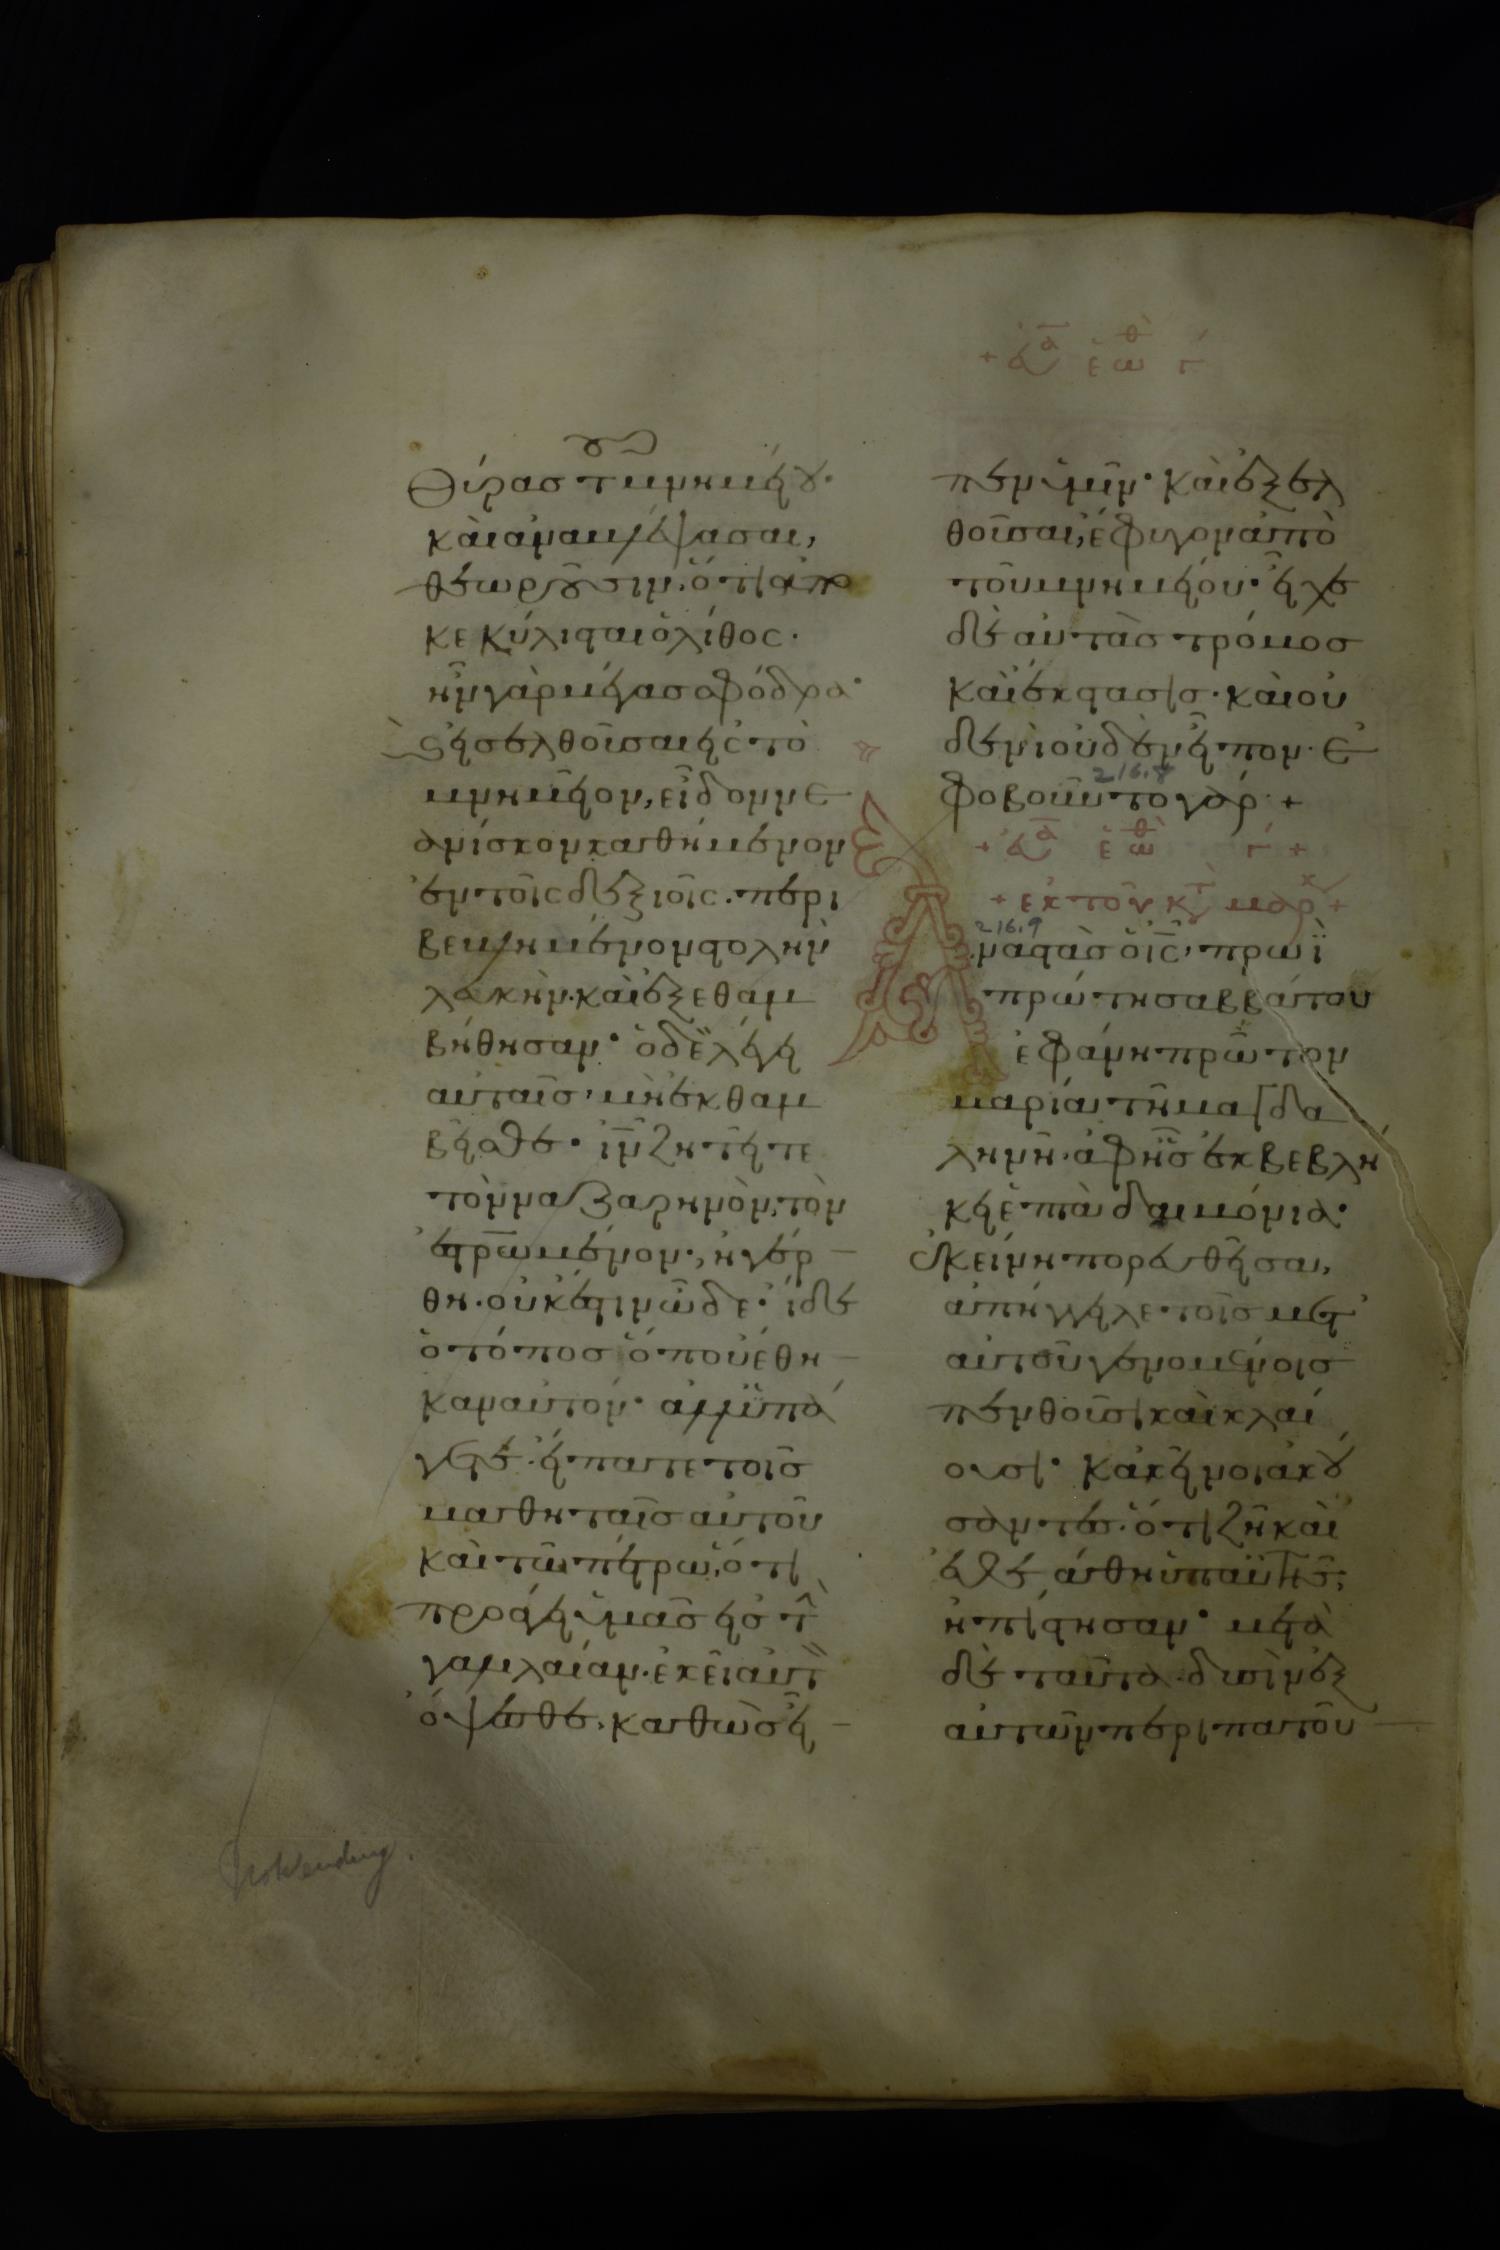 θύρας τοῦ μνημείου·
καὶ ἀναβλέψασαι,
θεωροῦσιν· ὅτι ἀπο
κεκύλισται ὁ λίθος·
ἦν γὰρ μέγας σφόδρα·
ϗ εἰσελθοῦσαι εἰς τὸ
μνημεῖον, εἶδον νε
ανίσκον καθήμενον
ἐν τοῖς δεξιοῖς· περι
βεβλημένον στολὴν
λευκὴν· καὶ ἐξεθαμ
βήθησαν· ὁ δὲ λέγει
αὐταῖς· μὴ ἐκθαμ
βεῖσθε· ιν ζητεῖτε
τὸν ναζαρηνὸν, τὸν
ἐστρωμένον·, ἠγέρ
θη· οὐκ ἔστιν ὧδε· ἴδε
ὁ τόπος ὅπου ἔθη
καν αὐτόν· ἀλλ ὑπά
γετε· εἴπατε τοῖς
μαθηταῖς αὐτοῦ
καὶ τῶ πέτρω, ὅτι
προάγει ὑμᾶς εἰς τὴν
γαλιλαίαν· ἐκεῖ αὐτὸν
ὄψεσθε· καθὼς εἶ
+ εὐα ἑωθ γ
πεν ὑμῖν· καὶ ἐξελ
θοῦσαι, ἔφυγον ἀπὸ
τοῦ μνημείου· εἶχε
δὲ αὐτὰς τρόμος
καὶ ἔκστασις· καὶ οὐ
δενὶ οὐδὲν εἶπον· ἐ
216,8
φοβοῦντο γάρ· +
+ εὐα ἑωθ γ +
+ ἐκ τοῦ κτ μαρκ +
216,9
Αναστὰς ὁ ις, πρωῒ
πρώτη σαββάτου
ἐφάνη πρῶτον
μαρία τῆ μαγδα
ληνῆ· ἀφ ἧς ἐκβεβλή
κει ἑπτὰ δαιμόνια·
ἐκείνη πορευθεῖσα,
ἀπήγγειλε τοῖς μετ
αὐτοῦ γενομένοις
πενθοῦσι καὶ κλαί
ουσι· κἀκεῖνοι ἀκού
σαντες· ὅτι ζῆ καὶ
ἐθεάθη ὑπ αὐτῆς,
ἠπίστησαν· μετὰ
δὲ ταῦτα· δυσὶν ἐξ
αὐτῶν περιπατοῦ